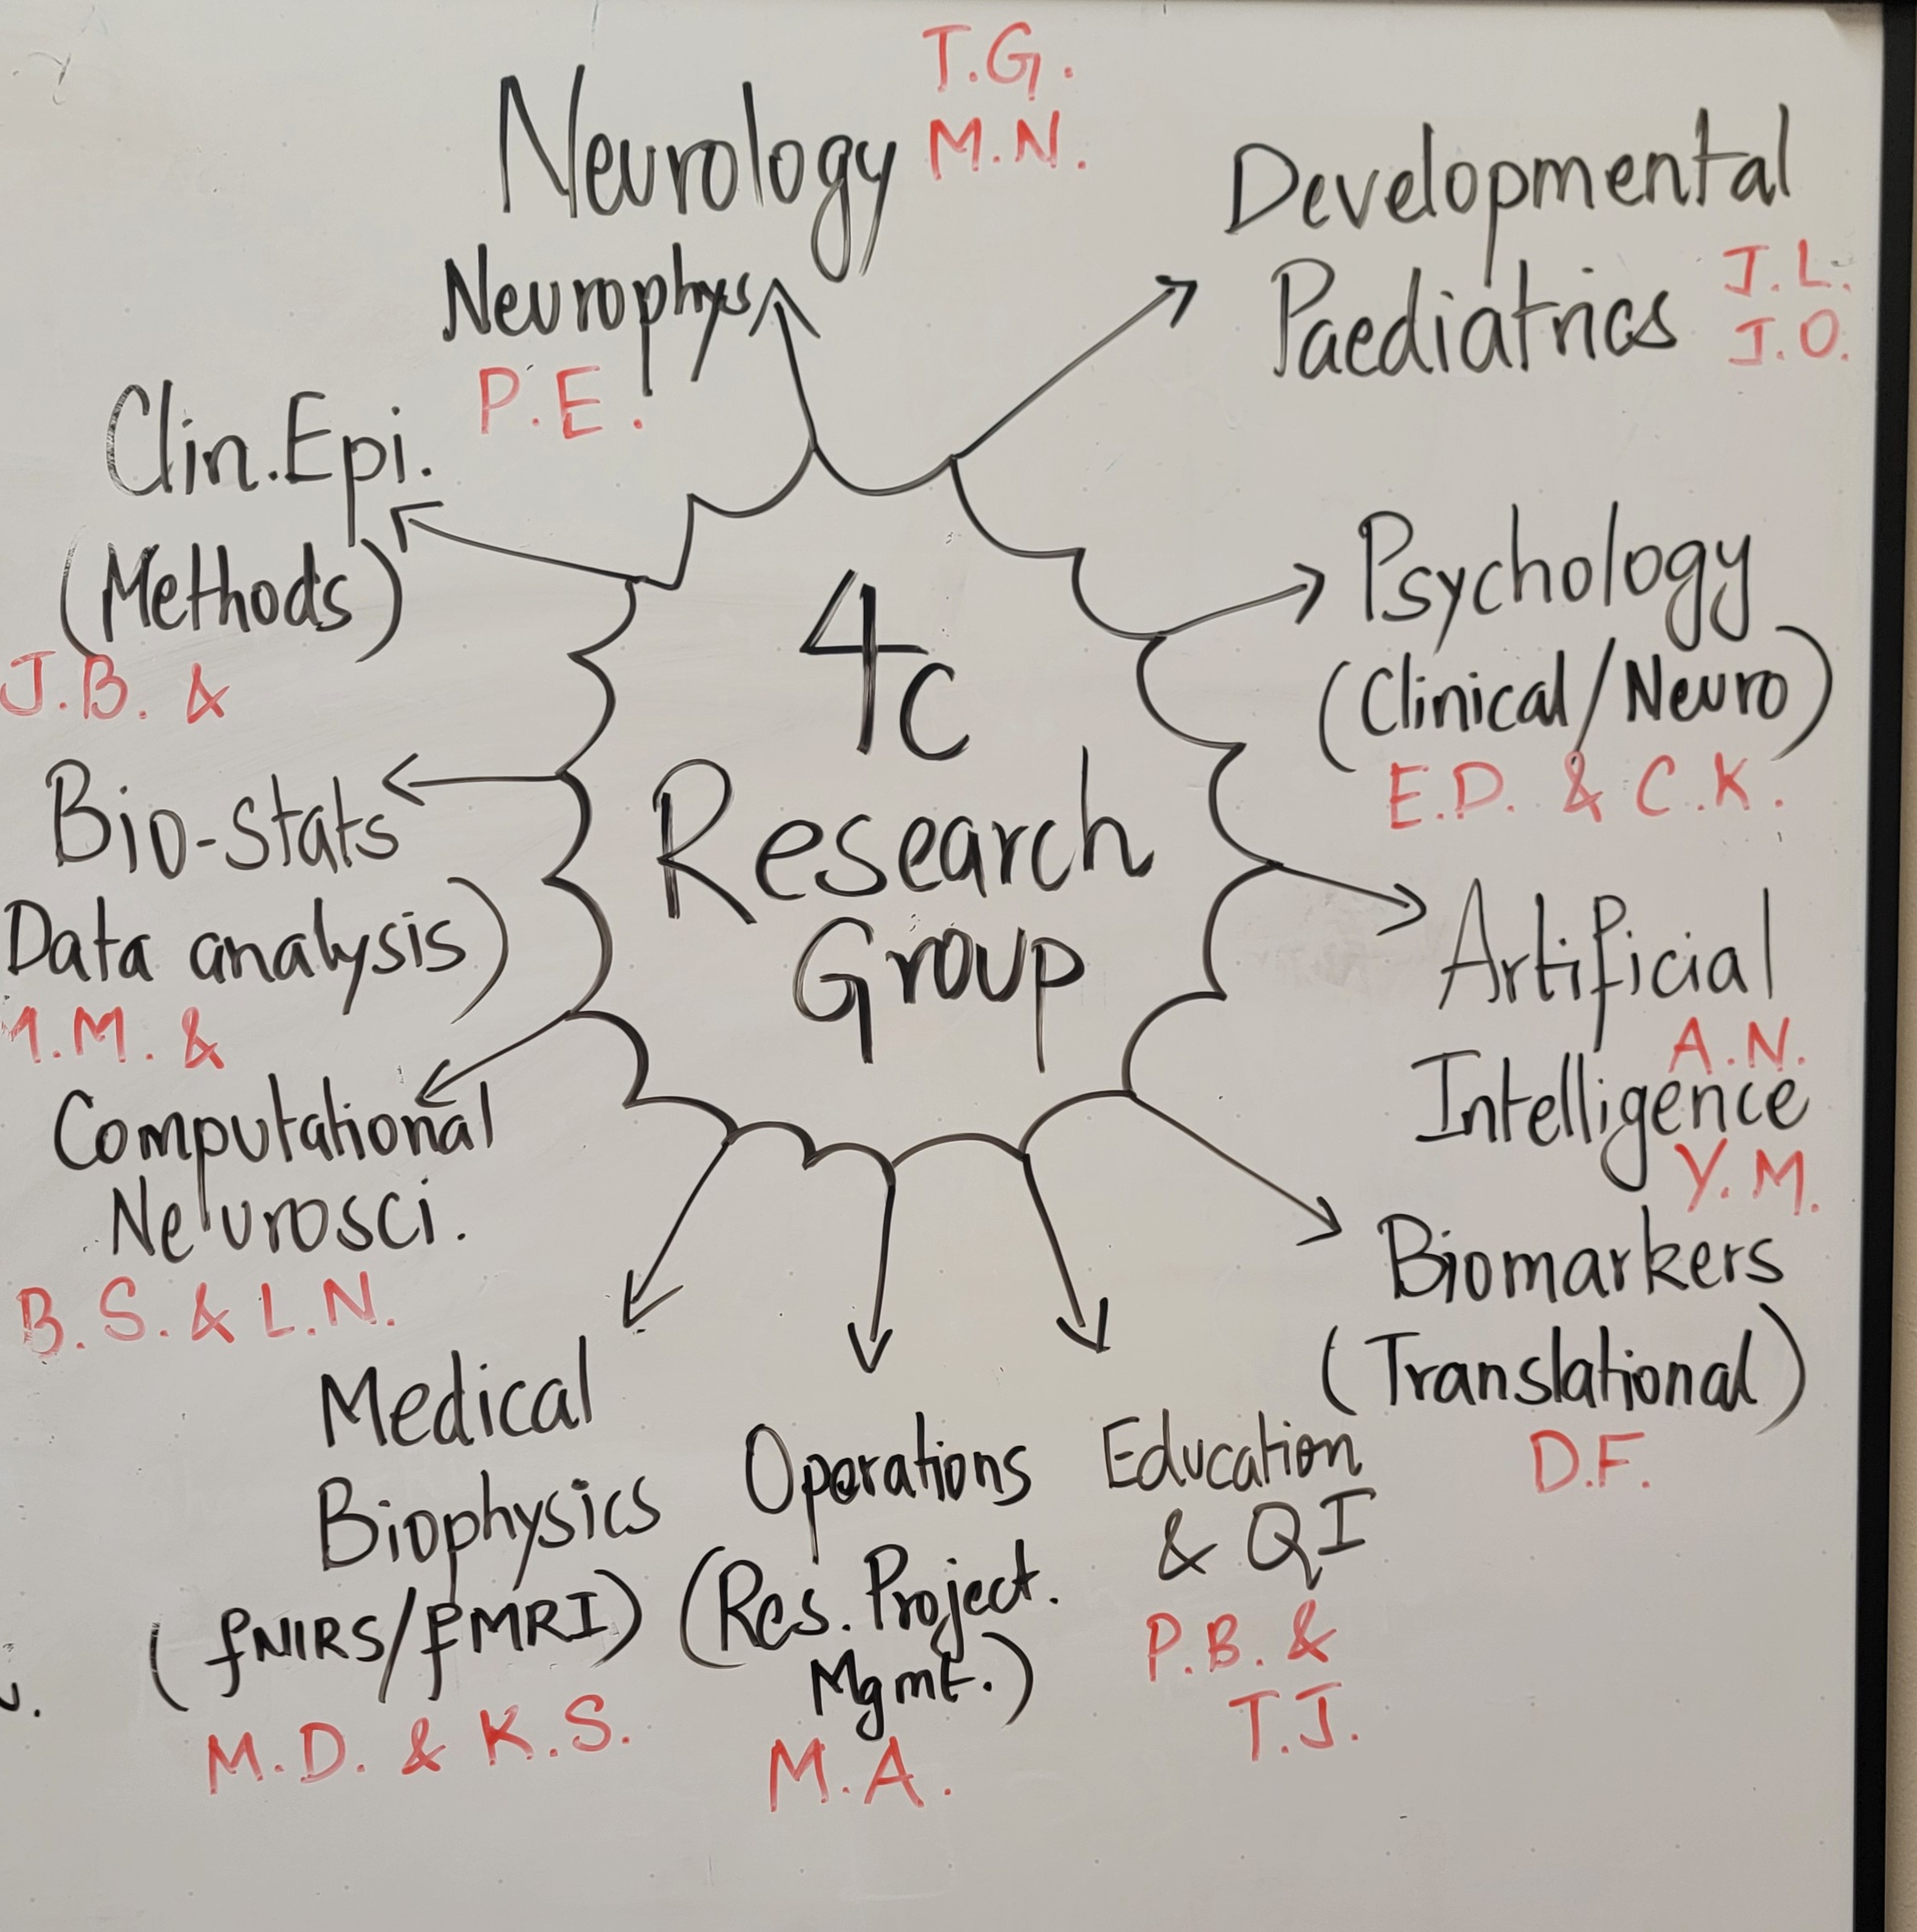 4c
Research
Group
Neurology
T.G.
M.N.
Neurophys
P.E.
Developmental
Paediatrics
J.L.
J.O.
Psychology
(Clinical/Neuro)
E.D. & C.K.
Artificial
A.N.
Intelligence
Y.M.
Biomarkers
(Translational)
D.F.
Education
& QI
P.B. &
T.J.
Operations
(Res. Project.
Mgmt.)
M.A.
Medical
Biophysics
(fNIRS/fMRI)
M.D. & K.S.
Computational
Neurosci.
B.S. & L.N.
Bio-stats
Data analysis)
.M. &
Clin.Epi.
(Methods)
J.B. &